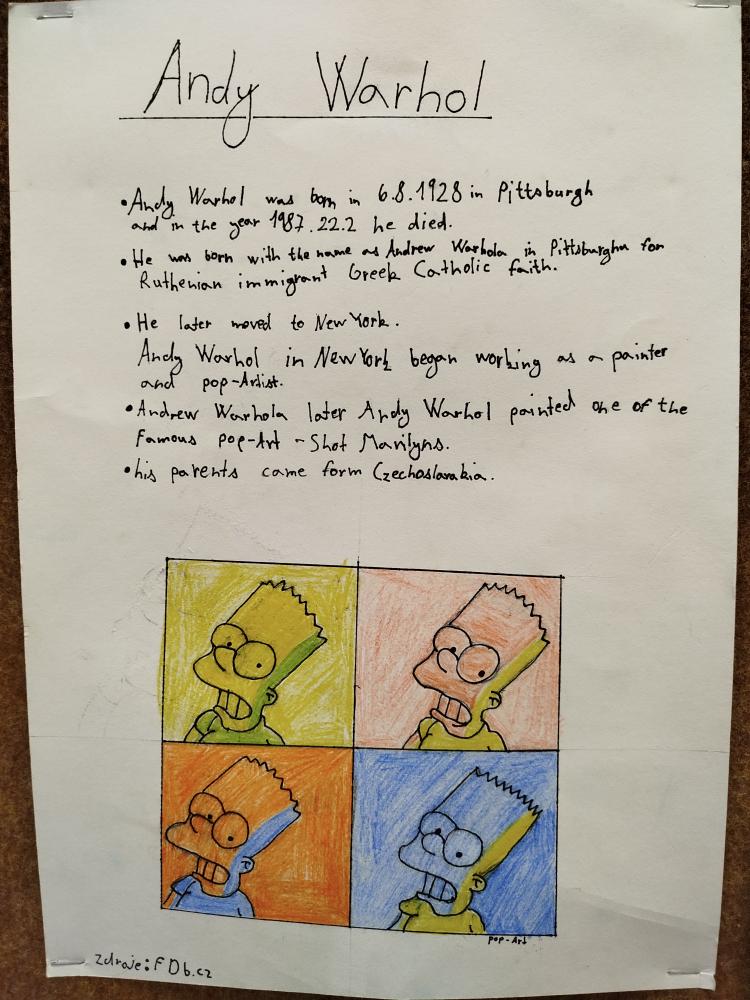 Andy Warhol
•Andy Warhol was born in 6.8.1928 in Pittsburgh
and in the year 1987.22.2 he died.
•He was born with the name as Andrew Warhola in Pittsburghu for
Ruthenian immigrant Greek Catholic faith.
•He later moved to New York.
Andy Warhol in New York began working as a painter
and pop-Artist.
•Andrew Warhola later Andy Warhol painted one of the
Famous pop-Art - Shot Marilyns.
•his parents came form Czechoslavakia.
pop-Art
zdroje: FDb.cz